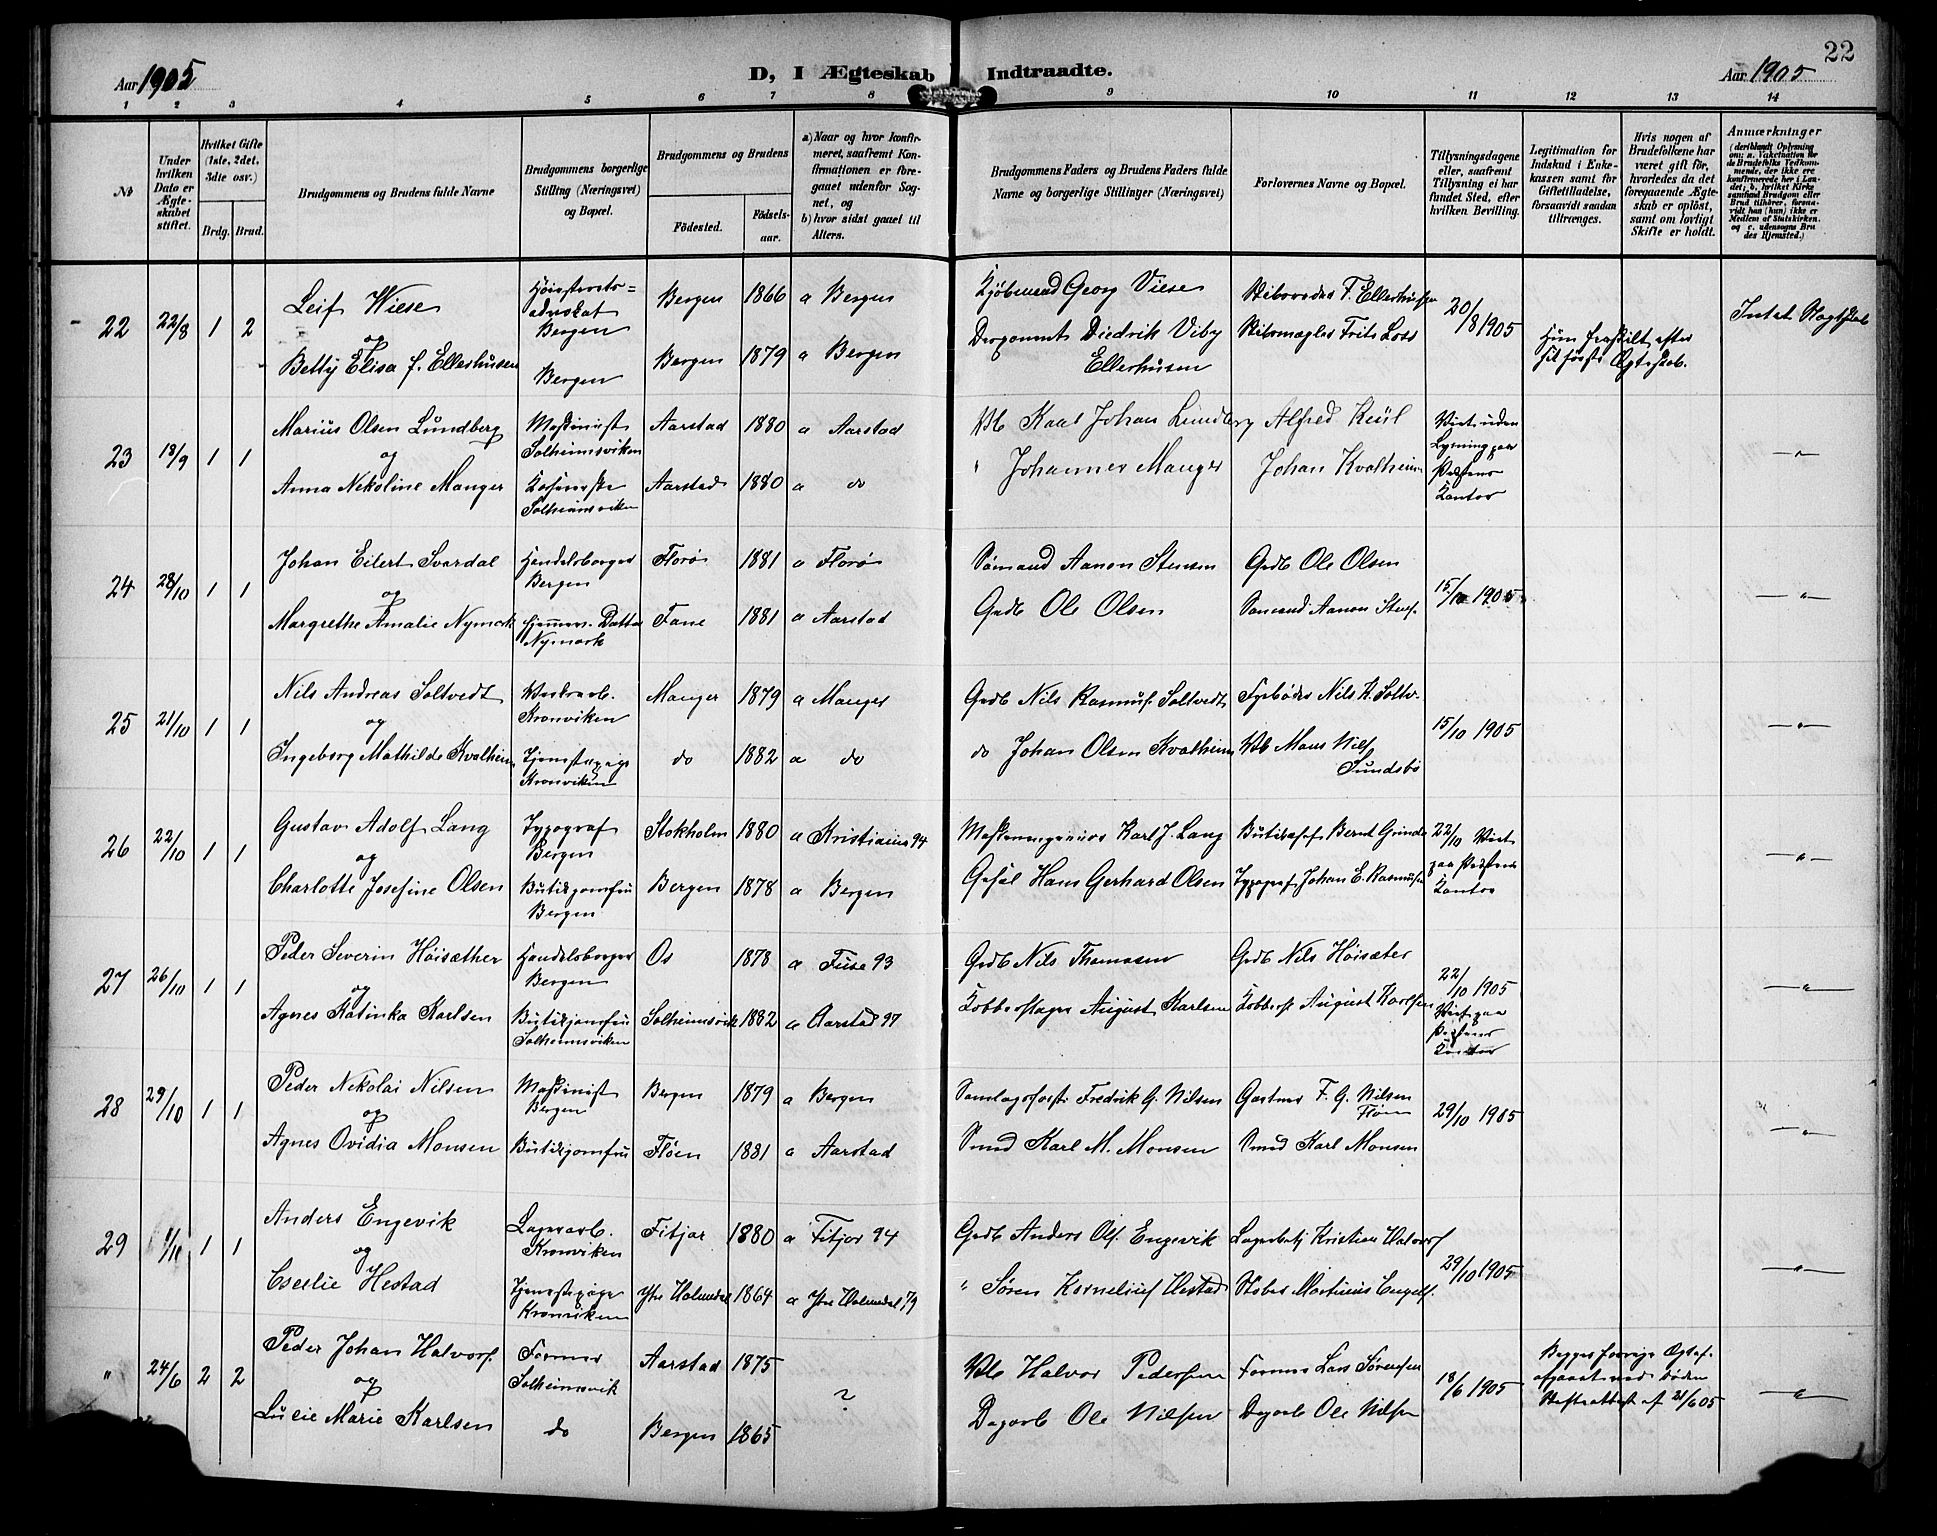 22
Aar 1905
D, I Ægteskab Indtraadte.
Aar 1905
1 2 3 4 5 6 7 8 9 10 11 12 13 14
No
Under hvilken Dato er Ægteskabet stiftet.
Hvilket Gifte (1ste, 2det, 3die osv.)
Brdg. Brud.
Brudgommens og Brudens fulde Navne
Brudgommens borgerlige Stilling (Næringsvei) og Bopæl.
Brudgommens og Brudens
Födested.
Födsels-aar.
a) Naar og hvor konfirmeret, saafremt Konfirmationen er foregaaet udenfor Sognet, og
b) hvor sidst gaaet til Alters.
Brudgommens Faders og Brudens Faders fulde Navne og borgerlige Stillinger (Næringsvei)
Forlovernes Navne og Bopæl.
Tillysningsdagene eller, saafremt Tillysning ei har fundet Sted, efter hvilken Bevilling.
Legitimation for Indskud i Enkekassen samt for Giftetilladelse, forsaavidt saadan tiltrænges.
Hvis nogen af Brudefolkene har været gift før, hvorledes da det foregaaende Ægteskab er oplöst, samt om lovligt Skifte er holdt.
Anmærkninger
(deriblandt Oplysning om: a. Vakcination for de Brudefolks Vedkommende, der ikke ere konfirmerede her i Landet; b. hvilket Kirkesamfund Brudgom eller Brud tilhører, forsaavidt han (hun) ikke er Medlem af Statskirken, og c. udensogns Brudes Hjemsted.)
22 22/8 1 2 Leif Wiese
og
Betty Elisa f. Ellerhusen
Høiesterets=
advokat
Bergen
Bergen
Bergen 1866 a Bergen
Bergen 1879 a Bergen
Kjøbmand Georg Viese
Diedrik Viby
Ellerhusen
F. Ellerhusen
Frits Loss
20/8 1905
Hun fraskilt efter
sit første Ægteskab.
Intet Slægtskab
23 18/9 1 1 Marius Olsen Lundberg
og
Anna Nekoline Manger
Maskinist
Solheimsviken
Solheimsviken
Aarstad 1880 a Aarstad
Aarstad 1880 a do
Johan Lundberg
" Johannes Manger
Alfred Keül
Johan Kvalheim
Viet uden
Lysning paa
Præstens
Kontor
— " —
24 28/10 1 1 Johan Eilert Svardal
og
Margrethe Amalie Nymark
Handelsborger
Bergen
Hjemmev. Datter
Nymark
Florø 1881 a Florø
Fane 1881 a Aarstad
Sømand Aanon Stensen
Grdb Ole Olsen
Grdb Ole Olsen
Sømand Aanon Stens.
15/10 1905
— " —
25 21/10 1 1 Nils Andreas Soltvedt
og
Ingeborg Mathilde Kvalheim
Kronviken
Tjenestepige
Kronviken
Manger 1879 a Manger
do 1882 a do
Grdb Nils Rasmus. Soltvedt
do Johan Olsen Kvalheim
Fyrbøder Nils N. Soltv.
Mons Nils.
Sundsbø
15/10 1905
— " —
26 22/10 1 1 Gustav Adolf Lang
og
Charlotte Josefine Olsen
Typograf
Bergen
Butikjomfru
Bergen
Stokholm 1880 a Kristiania 94
Bergen 1878 a Bergen
Karl J. Lang
Hans Gerhard Olsen
Bernt Grinde
Typograf Johan E. Rasmusen
22/10 Viet
paa Præstens
Kontor
— " —
27 26/10 1 1 Peder Severin Höisæther
og
Agnes Katinka Karlsen
Handelsborger
Bergen
Butikjomfru
Solheimsviken
Os 1878 a Fuse 93
Solheimsvik 1882 a Aarstad 97
Grdb Nils Thomasen
Kobberslager August Karlsen
Grdb Nils Höisæter
Kobbersl August Karlsen
22/10 1905
Viet paa
Præstens
Kontor
— " —
28 29/10 1 1 Peder Nekolai Nilsen
og
Agnes Ovidia Monsen
Maskinist
Bergen
Butikjomfru
Bergen 1879 a Bergen
Flöen 1881 a Aarstad
Fredrik G. Nilsen
Smed Karl M. Monsen
Gartner F. G. Nilsen
Flöen
Smed Karl Monsen
29/10 1905
— " —
29 1 1 Anders Engevik
og
Cecilie Hestad
Lagerarb.
Kronviken
Tjenestepige
Kronviken
Fitjar 1880 a Fitjar 94
Ytre Holmedal 1864 a Ytre Holmedal 79
Grdb Anders Ols. Engevik
" Søren Kornelius Hestad
Kristian Halvors.
Martinius Engels.
29/10 1905
— " —
" 24/6 2 2 Peder Johan Halvors.
og
Lucie Marie Karlsen
Former
Solheimsvik
do
Aarstad 1875
?
Bergen 1865
Halvor Pedersen
Dagarb Ole Nilsen
Former Lars Sørensen
Dagarb Ole Nilsen
18/6 1905
Begges forrige Ægtef.
afgaaet ved døden
Skifteattest af 21/6 05
— " —